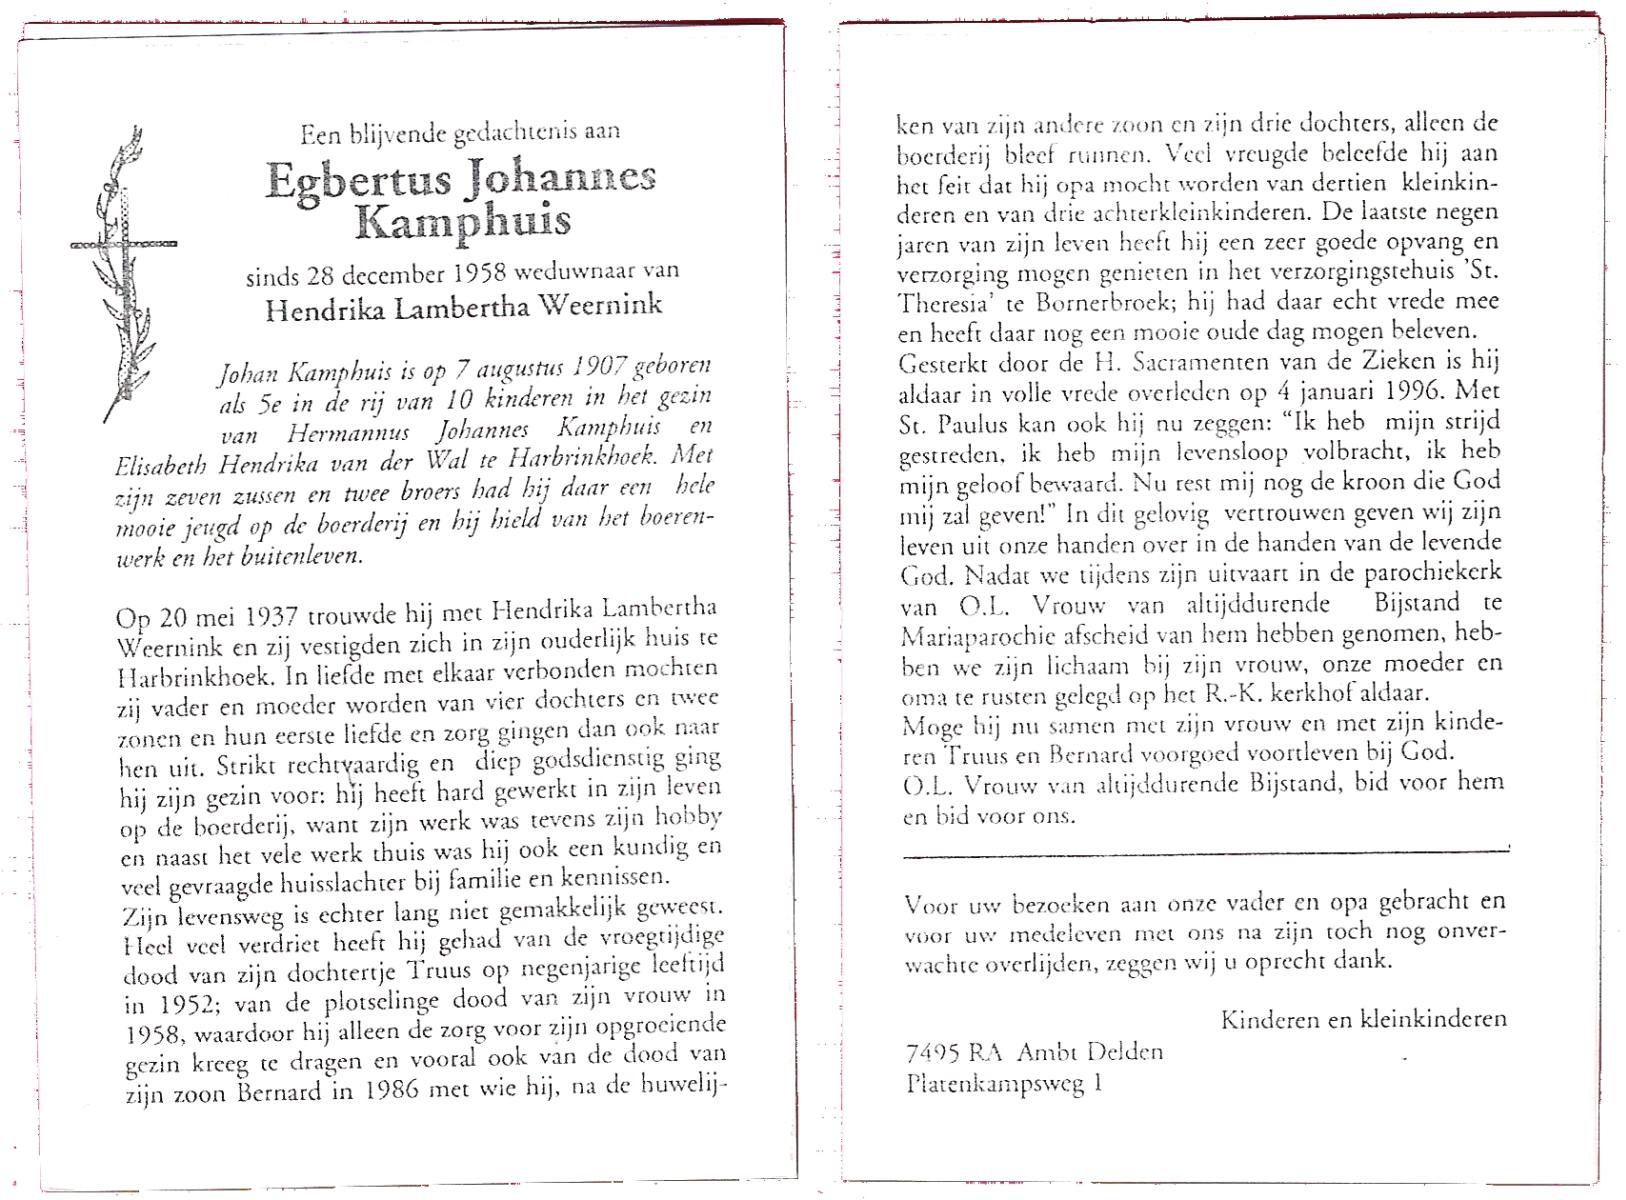 Een blijvende gedachtenis aan
Egbertus Johannes
Kamphuis
sinds 28 december 1958 weduwnaar van
Hendrika Lambertha Weernink
Johan Kamphuis is op 7 augustus 1907 geboren
als 5e in de rij van 10 kinderen in het gezin
van Hermannus Johannes Kamphuis en
Elisabeth Hendrika van der Wal te Harbrinkhoek. Met
zijn zeven zussen en twee broers had hij daar een hele
mooie jeugd op de boerderij en hij hield van het boeren-
werk en het buitenleven.
Op 20 mei 1937 trouwde hij met Hendrika Lambertha
Weernink en zij vestigden zich in zijn ouderlijk huis te
Harbrinkhoek. In liefde met elkaar verbonden mochten
zij vader en moeder worden van vier dochters en twee
zonen en hun eerste liefde en zorg gingen dan ook naar
hen uit. Strikt rechtvaardig en diep godsdienstig ging
hij zijn gezin voor: hij heeft hard gewerkt in zijn leven
op de boerderij, want zijn werk was tevens zijn hobby
en naast het vele werk thuis was hij ook een kundig en
veel gevraagde huisslachter bij familie en kennissen.
Zijn levensweg is echter lang niet gemakkelijk geweest.
Heel veel verdriet heeft hij gehad van de vroegtijdige
dood van zijn dochtertje Truus op negenjarige leeftijd
in 1952; van de plotselinge dood van zijn vrouw in
1958, waardoor hij alleen de zorg voor zijn opgroeiende
gezin kreeg te dragen en vooral ook van de dood van
zijn zoon Bernard in 1986 met wie hij, na de huwelij-
ken van zijn andere zoon en zijn drie dochters, alleen de
boerderij bleef runnen. Veel vreugde beleefde hij aan
het feit dat hij opa mocht worden van dertien kleinkin-
deren en van drie achterkleinkinderen. De laatste negen
jaren van zijn leven heeft hij een zeer goede opvang en
verzorging mogen genieten in het verzorgingstehuis 'St.
Theresia' te Bornerbroek; hij had daar echt vrede mee
en heeft daar nog een mooie oude dag mogen beleven.
Gesterkt door de H. Sacramenten van de Zieken is hij
aldaar in volle vrede overleden op 4 januari 1996. Met
St. Paulus kan ook hij nu zeggen: "Ik heb mijn strijd
gestreden, ik heb mijn levensloop volbracht, ik heb
mijn geloof bewaard. Nu rest mij nog de kroon die God
mij zal geven!" In dit gelovig vertrouwen geven wij zijn
leven uit onze handen over in de handen van de levende
God. Nadat we tijdens zijn uitvaart in de parochiekerk
van O.L. Vrouw van altijddurende Bijstand te
Mariaparochie afscheid van hem hebben genomen, heb-
ben we zijn lichaam bij zijn vrouw, onze moeder en
oma te rusten gelegd op het R.-K. kerkhof aldaar.
Moge hij nu samen met zijn vrouw en met zijn kinde-
ren Truus en Bernard voorgoed voortleven bij God.
O.L. Vrouw van altijddurende Bijstand, bid voor hem
en bid voor ons.
Voor uw bezoeken aan onze vader en opa gebracht en
voor uw medeleven met ons na zijn toch nog onver-
wachte overlijden, zeggen wij u oprecht dank.
Kinderen en kleinkinderen
7495 RA Ambt Delden
Platenkampsweg 1